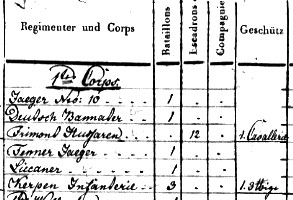 Regimenter und Corps
Bataillons
Escadrons
Compagnie
Geschütz
1te Corps.
Jaeger Nro: 10 1
Deutsch Bannater 1
Frimont Husaren 12 1. Cavallerie
Fenner Jaeger 1
Liccaner 1
Kerpen Infanterie 3 1.